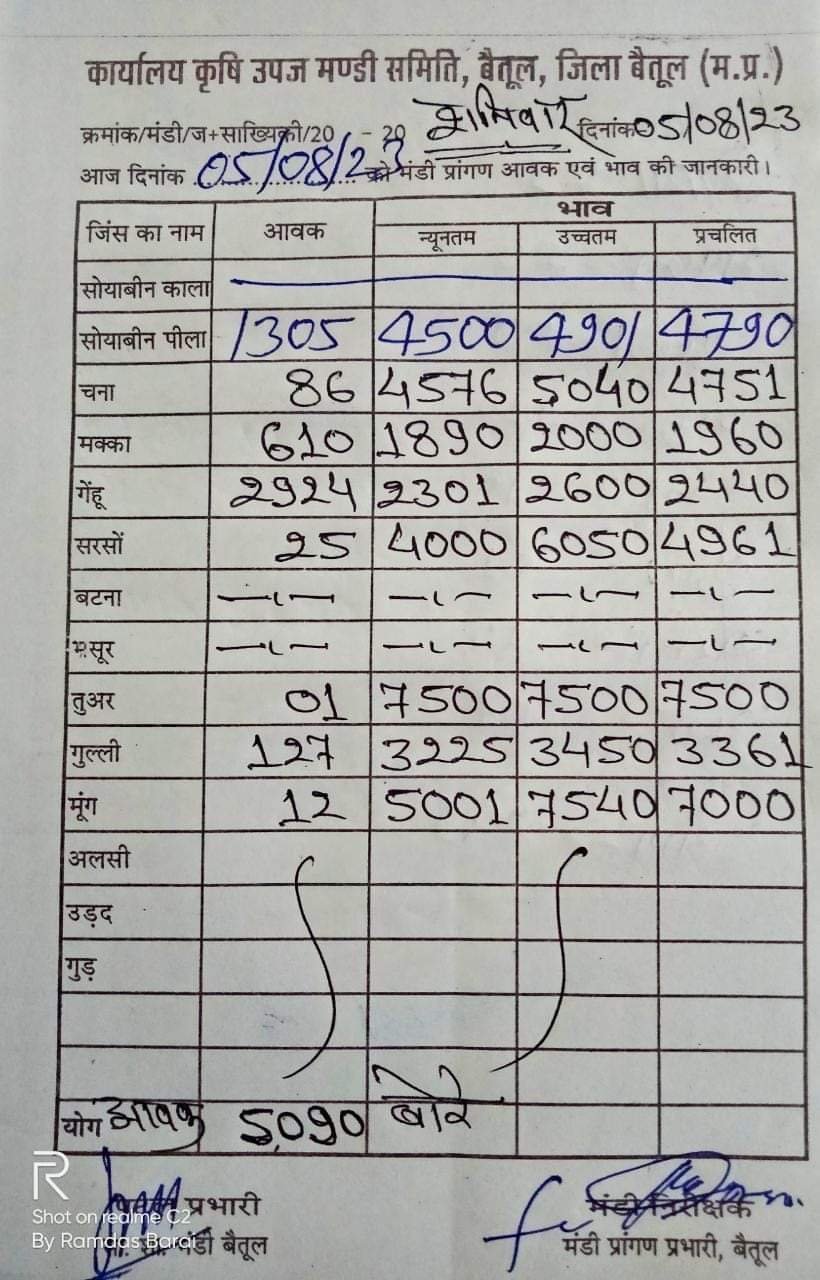 कार्यालय कृषि उपज मण्डी समिति, बैतूल, जिला बैतूल (म.प्र.)
क्रमांक/मंडी/ज+साख्यिकी/20 - 20 शनिवार दिनांक 05/08/23
आज दिनांक 05/08/23 को मंडी प्रांगण आवक एवं भाव की जानकारी।
जिंस का नाम आवक भाव
न्यूनतम उच्चतम प्रचलित
सोयाबीन काला
सोयाबीन पीला 1305 4500 4901 4790
चना 86 4576 5040 4751
मक्का 610 1890 2000 1960
गेंहू 2924 2301 2600 2440
सरसों 25 4000 6050 4961
बटना
मसूर
तुअर 01 7500 7500 7500
गुल्ली 127 3225 3450 3361
मूंग 12 5001 7540 7000
अलसी
उड़द
गुड़
योग आवक 5,090 बोरे
प्रभारी मंडी निरीक्षक
मंडी बैतूल मंडी प्रांगण प्रभारी, बैतूल
R
Shot on realme C2
By Ramdas Barde